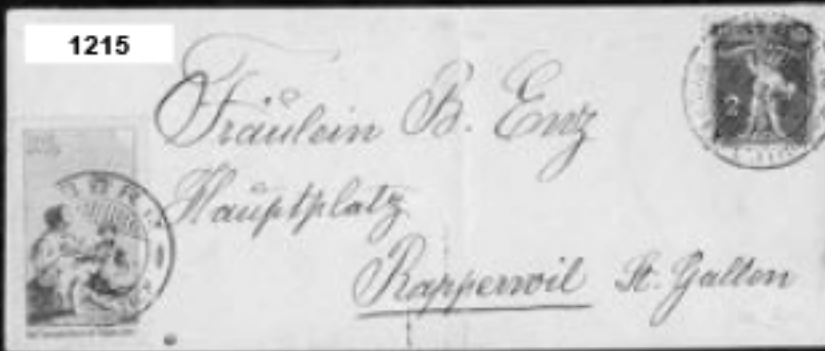 1215
Fräulein B. Enz
Hauptplatz
Rapperswil St. Gallen
2